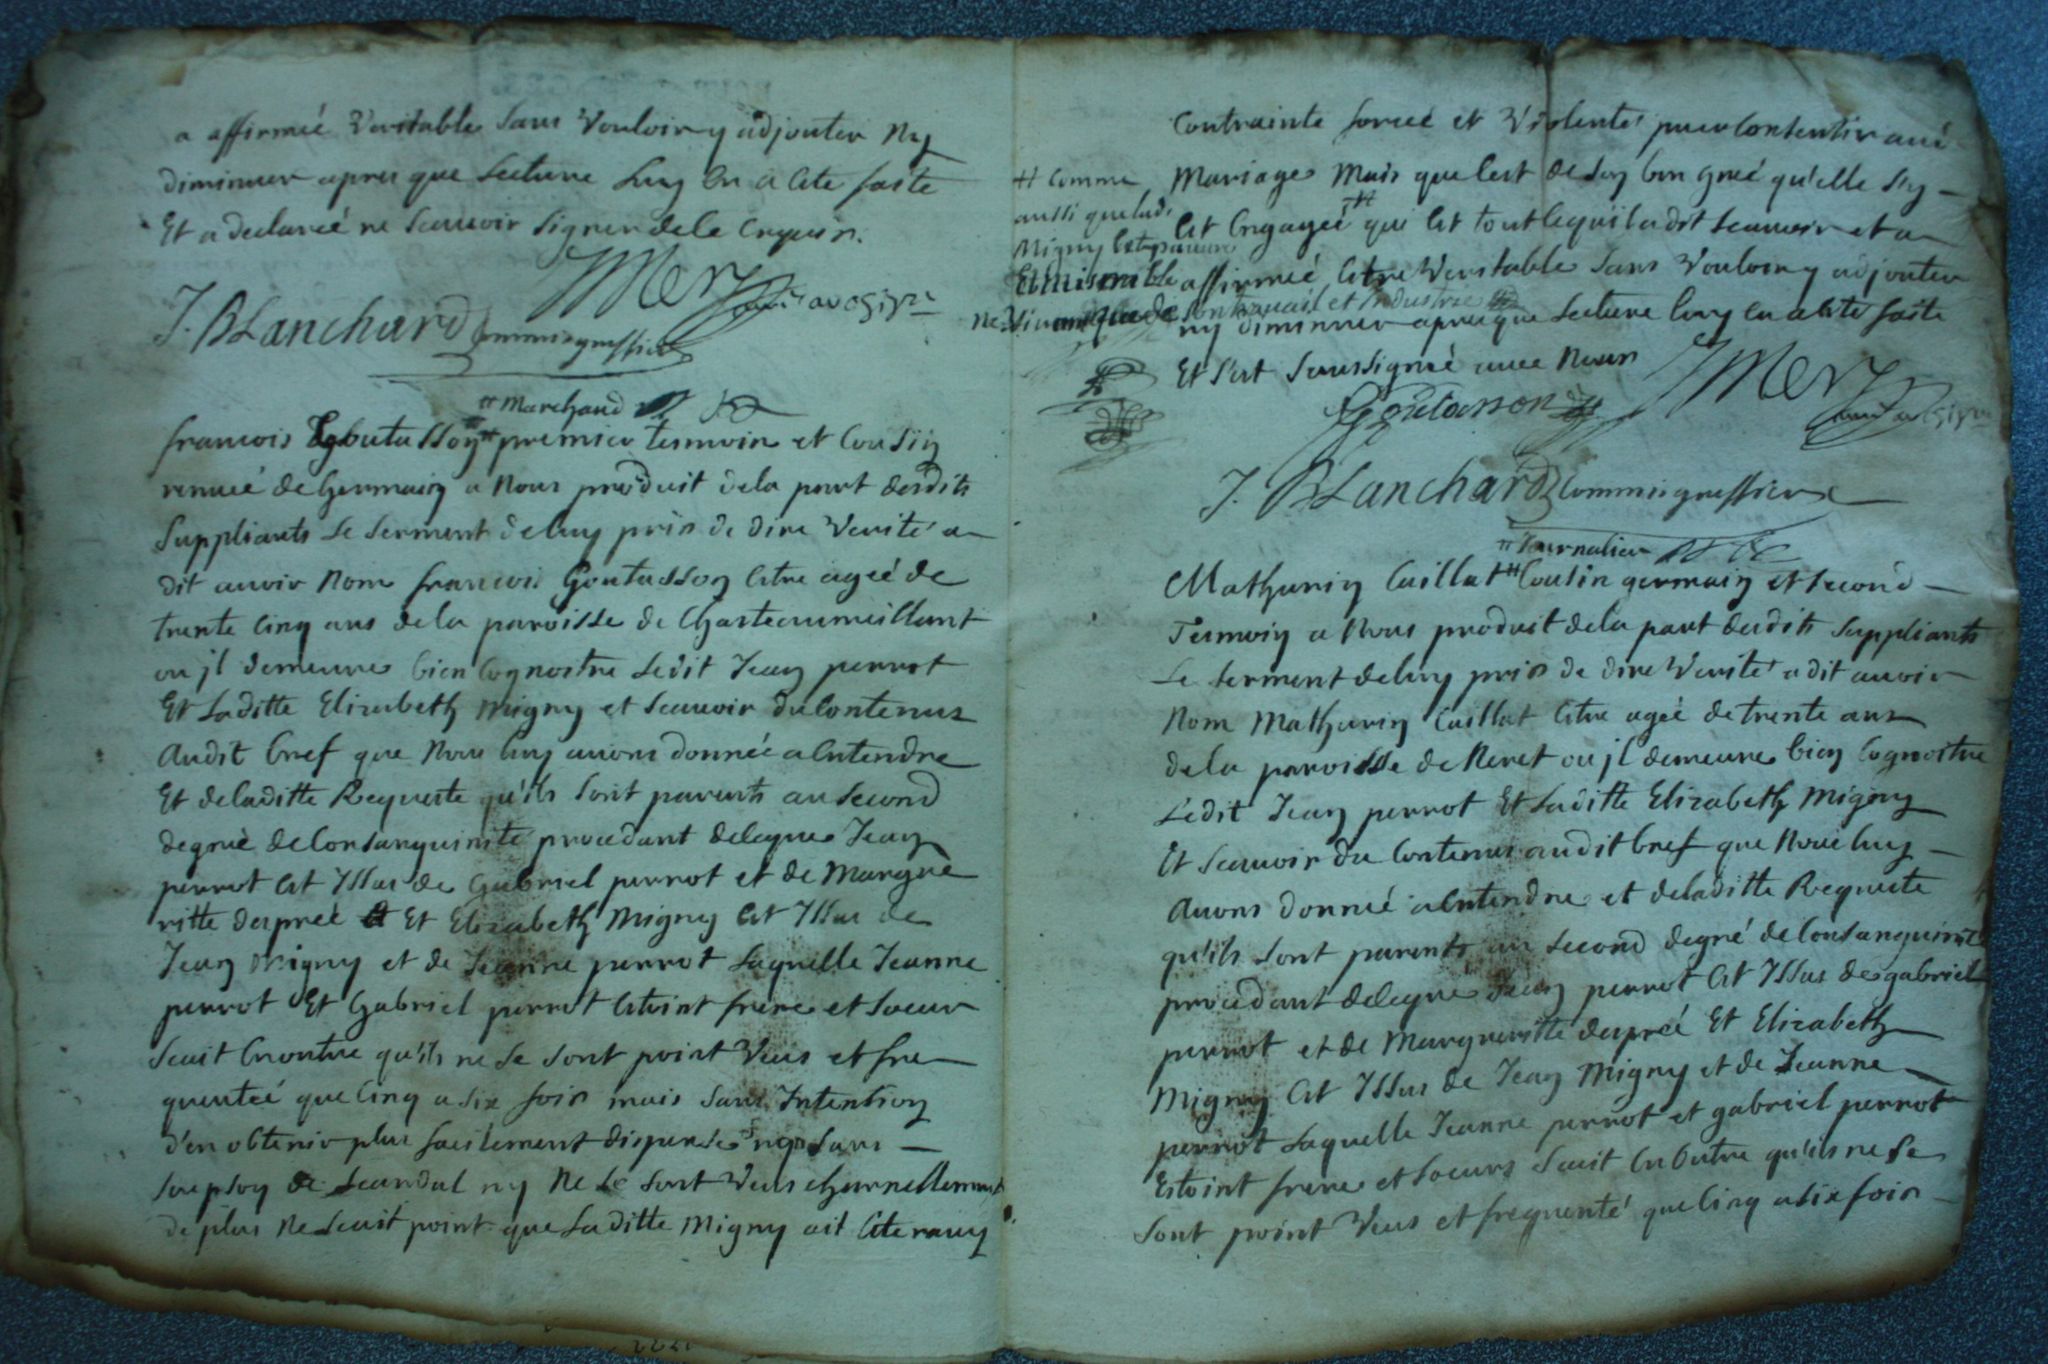 a affirmeé Veritable sans Vouloir y adjouter Ny
diminuer apres que Lecture Luy En a Este faite
Et a declareé ne Scauoir signer de le Enquis.
Mery
J. BLanchard commis greffier
# Marchand
francois Goutasson # premier tesmoin et Cousin
remué de Germain a Nous produit dela part desdits
Suppliants Le serment de luy pris de dire Verité a
dit auoir Nom francois Goutasson Estre ageé de
trente Cinq ans dela paroisse de Chasteaumeillant
ou jl demeure bien Cognoitre Ledit Jean perrot
Et Laditte Elizabeth Migny et Scauoir du Contenus
Audit bref que Nous luy auons donneé a Entendre
Et deladitte Requeste qu'ils sont parents au second
degrué de Consanguinité procedant deleque Jean
perrot Est Yssus de Gabriel perrot et de Margue
ritte despreé Et Elizabeth Migny Est Yssus de
Jean Migny et de Jeanne perrot Laquelle Jeanne
perrot Et Gabriel perrot Etoint frere et soeur
scait En outre qu'ils ne se sont point Veus et fre
quenteé que Cinq a six fois mais sans Intention
d'en obtenir plus facilement dispense ny sans
soupson de Scandal ny Ne se sont Veus charnellement
de plus Ne Scait point que Laditte Migny ait Este rauy
Contrainte forceé et Violenteé pour Consentir aud
Mariage Mais que C'est de son bon gré qu'elle s'y
# Comme
aussi que lad.
Migny Est pauure
Et Miserable
ne Viuant que de son trauail et Industrie
Est Engageé # qui Est tout Ce qu'il a dit scauoir et a
affirmeé Estre Veritable sans Vouloir y adjouter
ny diminuer apres que Lecture luy en a Este faite
Et s'est Soussigneé auec Nous
Goutasson Mery
J. BLanchard Commis greffier
# Journalier
Mathurin Caillat # Cousin germain et second
Tesmoin a Nous produit dela part desdits Suppliants
Le serment de luy pris de dire Verité a dit auoir
Nom Mathurin Caillat Estre ageé de trente ans
dela paroisse de Neret ou jl demeure bien Cognoitre
Ledit Jean perrot Et Laditte Elizabeth Migny
Et Scauoir du Contenus audit bref que Nous luy
Auons donneé a Entendre et deladitte Requeste
qu'ils sont parents au second degré de Consanguinité
procedant deleque Jean perrot Est Yssus de gabriel
perrot et de Margueritte despreé Et Elizabeth
Migny Est Yssus de Jean Migny et de Jeanne
perrot Laquelle Jeanne perrot et gabriel perrot
Etoint frere et soeurs Scait En Outre qu'ils ne se
sont point Veus et frequenté que Cinq a six fois